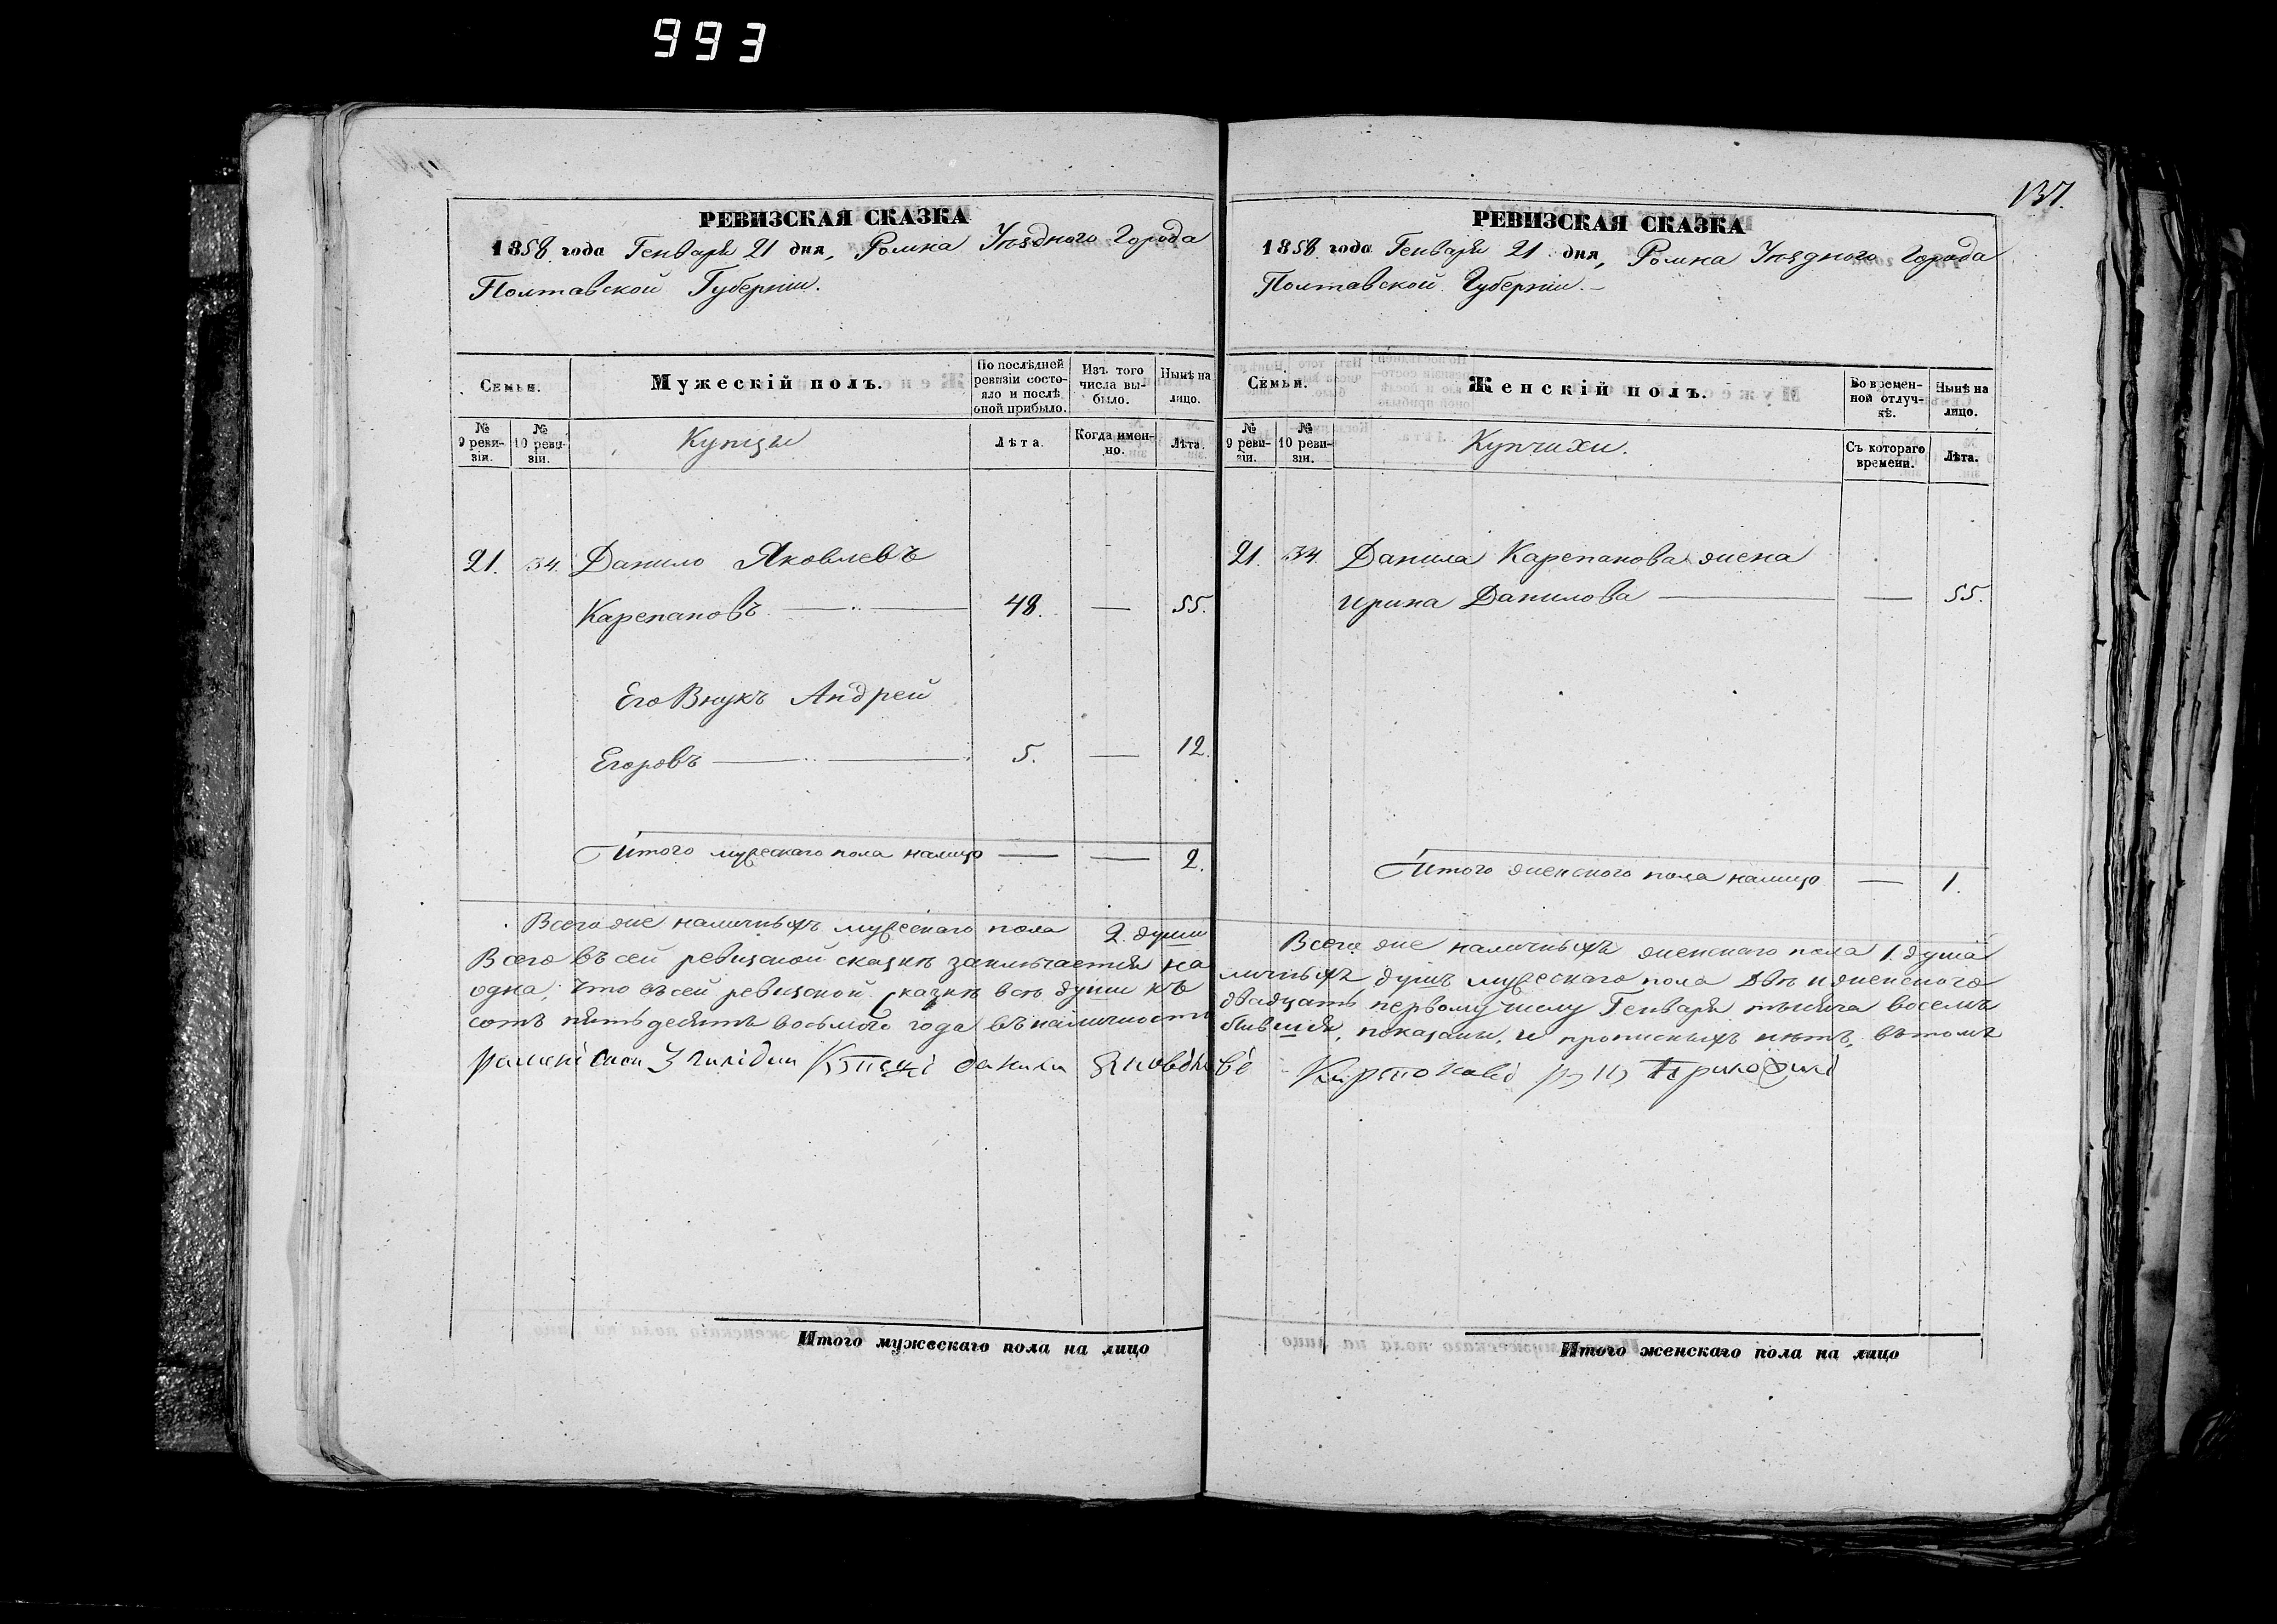 993
137.
РЕВИЗСКАЯ СКАЗКА
1858 года Генваря 21 дня, Ромна Уѣзднаго Города
Полтавской Губерніи.
Семьи.
Мужескій полъ.
По послѣдней ревизіи состояло и послѣ оной прибыло.
Изъ того числа выбыло.
Нынѣ на лицо.
№ 9 ревизіи.
№ 10 ревизіи.
Купцы
Лѣта.
Когда именно.
Лѣта.
21. 34. Данило Яковлевъ
Карепановъ — 48. — 55.
Его Внукъ Андрей
Егоровъ — 5. — 12.
Итого мужескаго пола налицо — — 2.
Всего же наличныхъ мужескаго пола 2. души
Итого мужескаго пола на лицо
РЕВИЗСКАЯ СКАЗКА
1858 года Генваря 21 дня, Ромна Уѣзднаго Города
Полтавской Губерніи. —
Семьи.
Женскій полъ.
Во временной отлучкѣ.
Нынѣ на лицо.
№ 9 ревизіи.
№ 10 ревизіи.
Купчихи.
Съ котораго времени.
Лѣта.
21. 34. Данила Карепанова жена
Ирина Данилова — — 55.
Итого женского пола налицо — 1.
Всего же наличныхъ женскаго пола 1. душа
Всего въ сей ревизской сказкѣ заключается наличныхъ душъ мужескаго пола двѣ и женского
одна; что въ сей ревизской Сказкѣ всѣ души къ двадцать первому числу Генваря тысяча восемь
сотъ пятьдесятъ восьмого года въ наличности бывшія, показаны, и прописныхъ нѣтъ, въ томъ
Данила
Итого женскаго пола на лицо